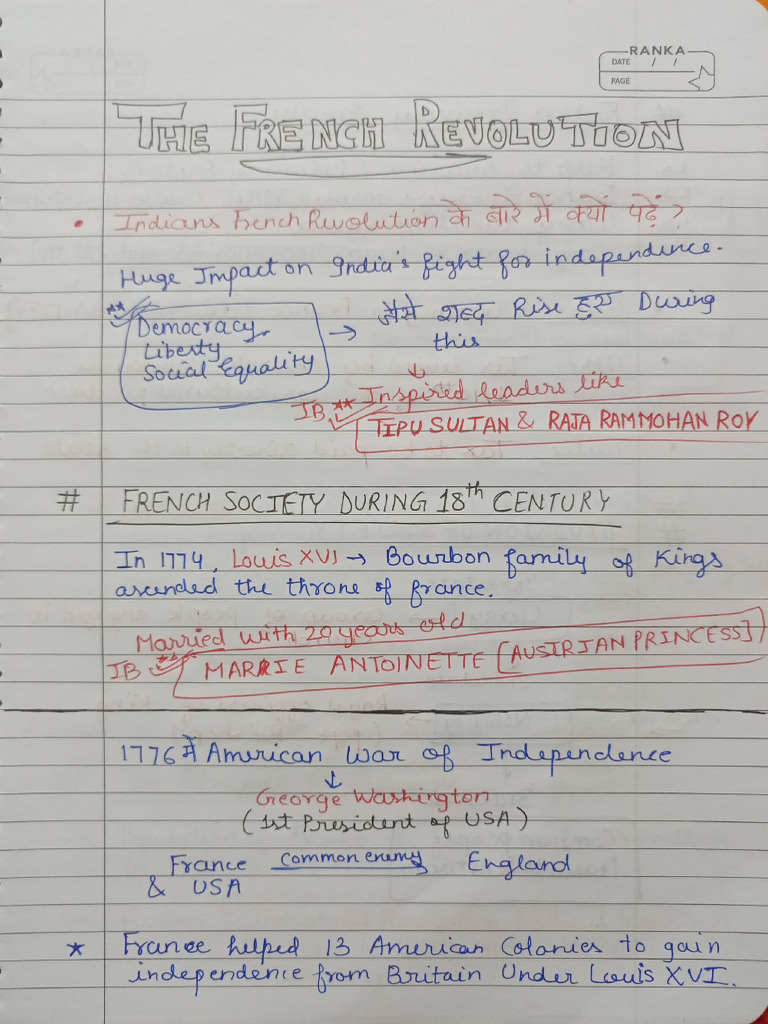 RANKA
DATE / /
PAGE
THE FRENCH REVOLUTION
• Indians French Revolution के बारे में क्यों पढ़ें ?
Huge Impact on India's fight for independence.
** Democracy → जैसे शब्द Rise हुए During
Liberty this
Social Equality
↓
IB ** Inspired leaders like
TIPU SULTAN & RAJA RAMMOHAN ROY
# FRENCH SOCIETY DURING 18th CENTURY
In 1774, Louis XVI → Bourbon family of Kings
ascended the throne of france.
Married with 20 years old
IB ** MARRIE ANTOINETTE [AUSTRIAN PRINCESS]
1776 में American War of Independence
↓
George Washington
(1st President of USA)
France common enemy England
& USA
★ France helped 13 American Colonies to gain
independence from Britain Under Louis XVI.